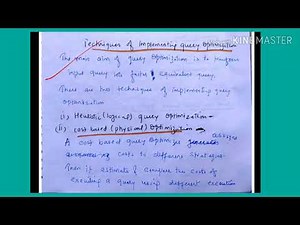 KINEMASTER
Techniques of Implementing query optimization
The main aim of query optimization is to transform
input query into faster & equivalent query.
There are two techniques of implementing query
optimization
(i) Heuristic (logical) query optimization
(ii) Cost based (physical) optimization
A cost based query optimizer assigns
costs to different strategies.
Then it estimate & compare the costs of
executing a query using different execution